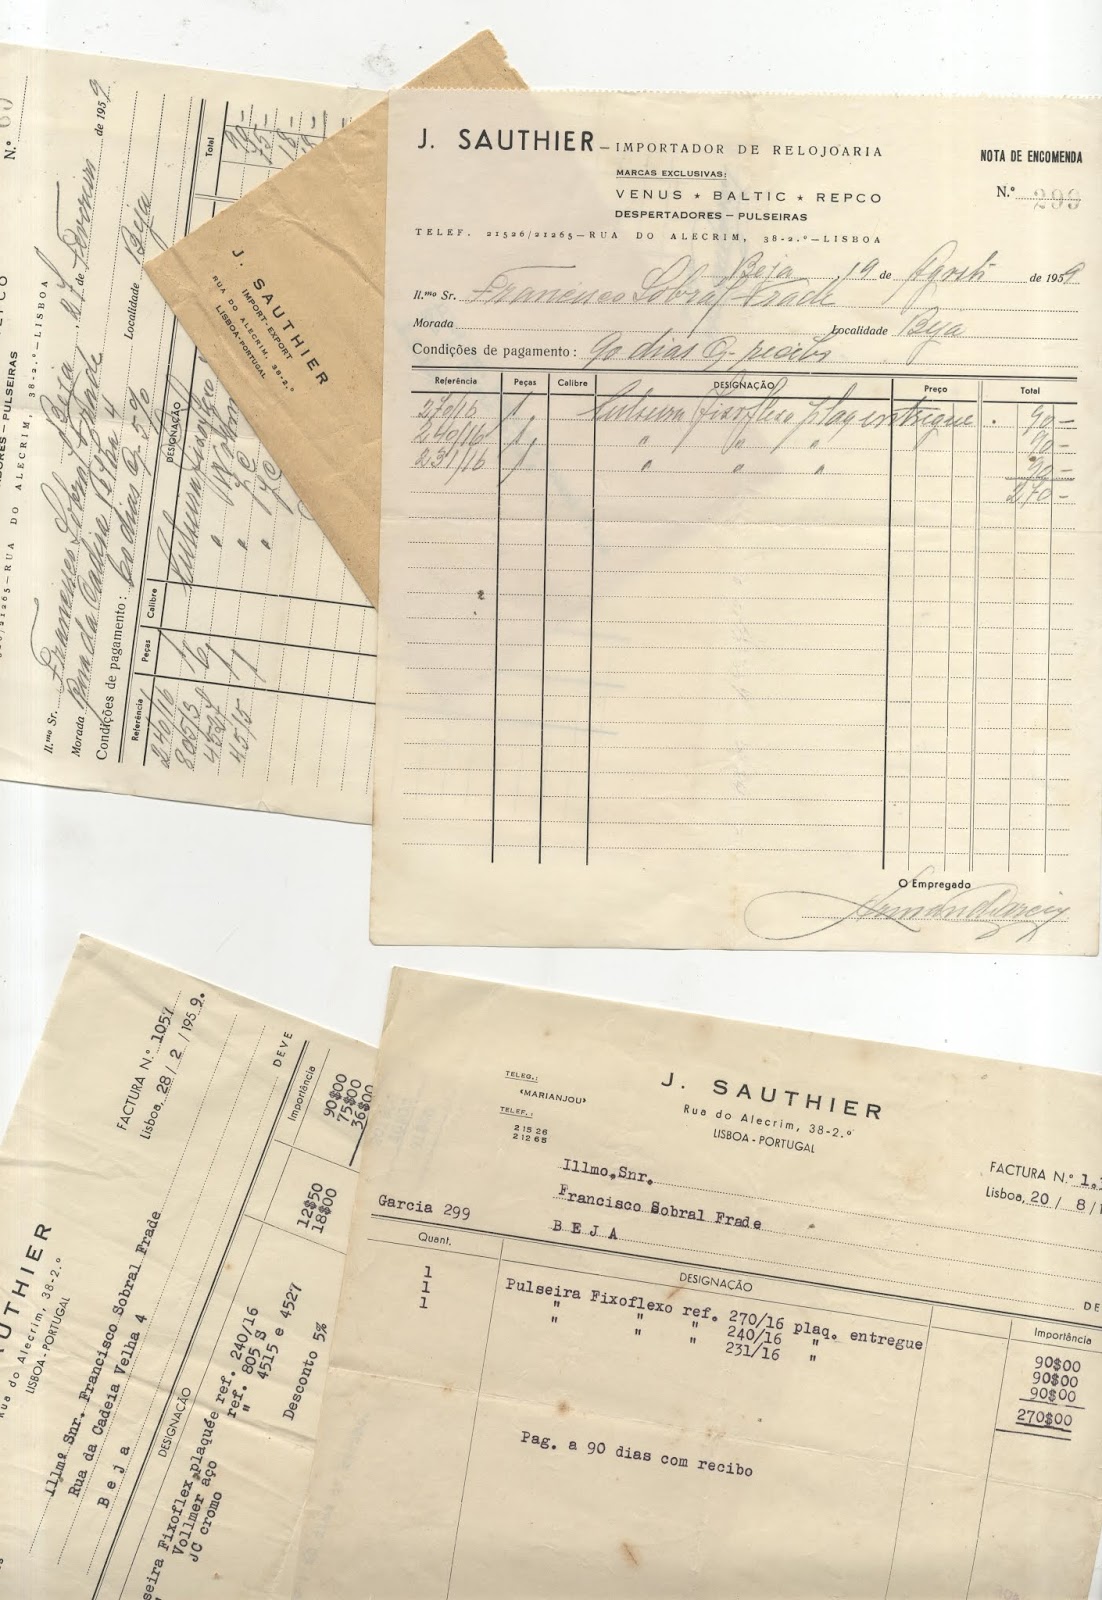 J. SAUTHIER — IMPORTADOR DE RELOJOARIA
MARCAS EXCLUSIVAS:
VENUS ★ BALTIC ★ REPCO
DESPERTADORES — PULSEIRAS
TELEF. 21526/21265 — RUA DO ALECRIM, 38-2.º — LISBOA
NOTA DE ENCOMENDA
N.º 299
Beja, 19 de Agosto de 1959
Il.mo Sr. Francisco Sobral Frade
Morada Localidade Beja
Condições de pagamento: 90 dias
Referência Peças Calibre DESIGNAÇÃO Preço Total
270/16 1 Pulseira Fixoflexo plaq entregue 90-
240/16 1 " " " 90-
231/16 1 " " " 90-
270-
O Empregado
J. SAUTHIER
IMPORT-EXPORT
RUA DO ALECRIM, 38-2.º
LISBOA-PORTUGAL
N.º
PULSEIRAS
21265 — RUA DO ALECRIM, 38-2.º — LISBOA
Beja, 27 de Fevereiro de 1959
Il.mo Sr. Francisco Sobral Frade
Morada Rua da Cadeia Velha 4 Localidade Beja
Condições de pagamento: 60 dias 5%
Referência Peças Calibre DESIGNAÇÃO Total
240/16 1
805/S
4527 1
4515 1
FACTURA N.º 1057
Lisboa, 28 / 2 / 1959.
UTHIER
Rua do Alecrim, 38-2.º
LISBOA-PORTUGAL
Illmº Snr. Francisco Sobral Frade
Rua da Cadeia Velha 4
B e j a
DEVE
DESIGNAÇÃO Importância
seira Fixoflex plaquée ref. 240/16 90$00
Vollmer aço ref. 805 S 75$00
JC cromo " 4515 e 4527 36$00
Desconto 5%
12$50
18$00
TELEG.:
«MARIANJOU»
TELEF.:
21526
21265
J. SAUTHIER
Rua do Alecrim, 38-2.º
LISBOA-PORTUGAL
FACTURA N.º 1.
Lisboa, 20 / 8 /
Illmo.Snr.
Francisco Sobral Frade
B E J A
Garcia 299
DE
Quant. DESIGNAÇÃO Importância
1 Pulseira Fixoflexo ref. 270/16 plaq. entregue 90$00
1 " " " 240/16 " 90$00
1 " " " 231/16 " 90$00
270$00
Pag. a 90 dias com recibo